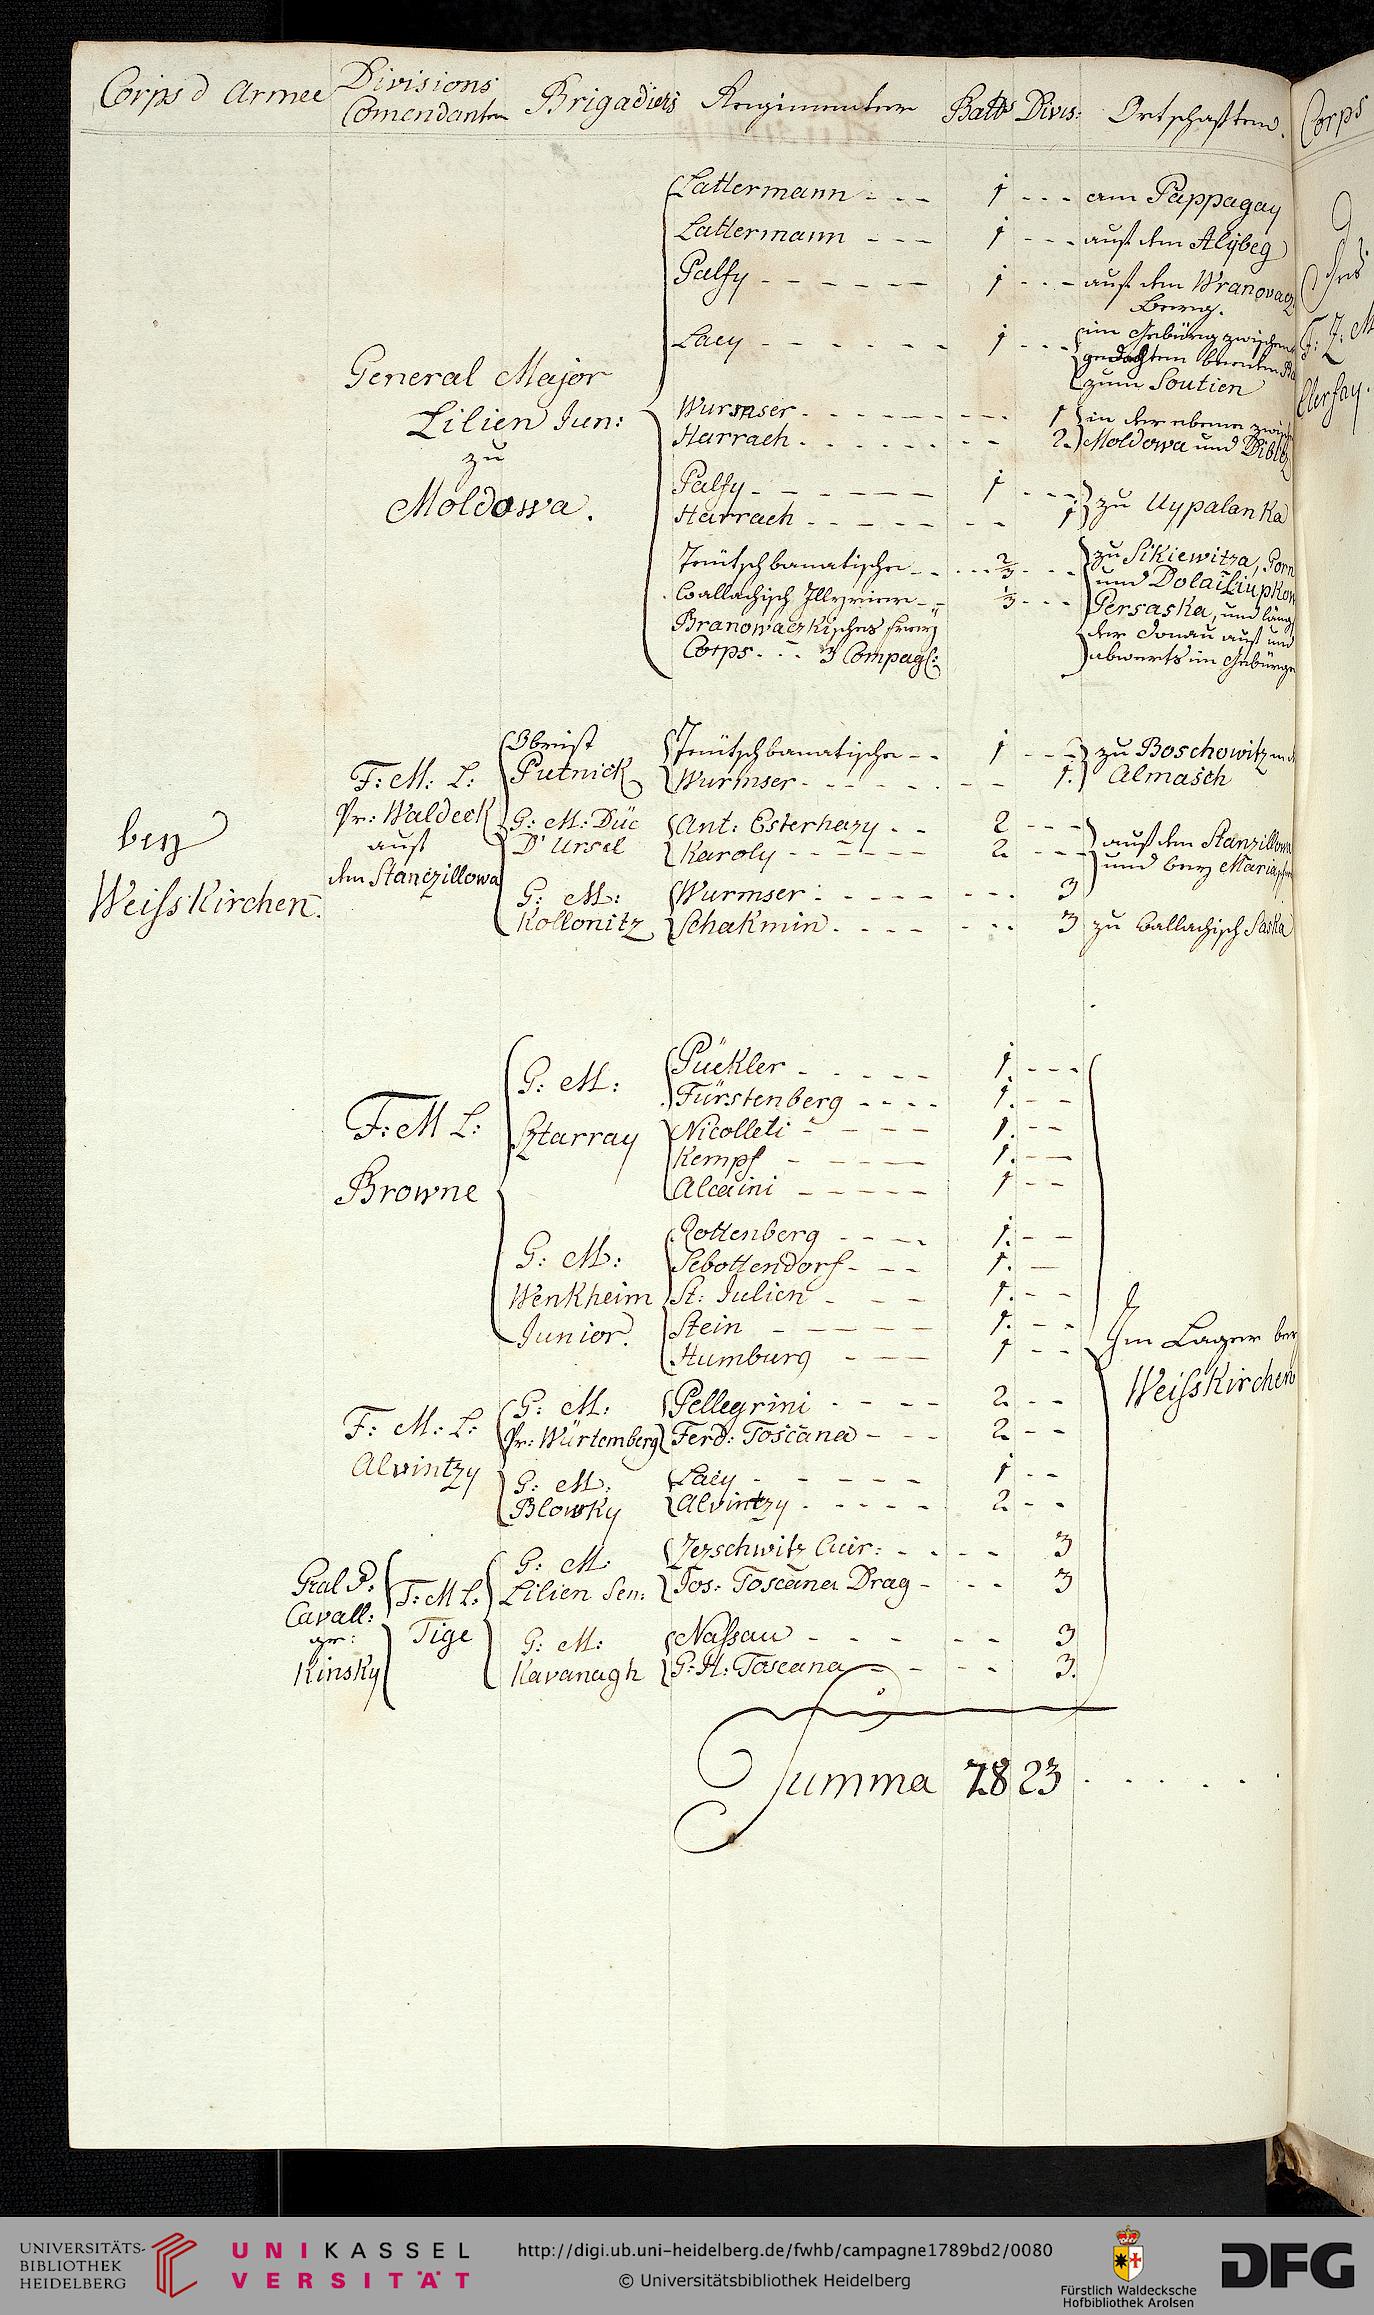 Corps d Armee Divisions Comendanten Brigadiers Regimenter Batts Divis: Ortschafften.
Lattermann - - - 1 - - - am Pappagay
Lattermann - - - 1 - - - auf dem Alÿbeg
Palfy - - - - - - 1 - - - auf dem Wranovacz
Berg.
Lacy - - - - - - 1 - - - im Gebürg zwischen
gedachten beeden
zum Soutien
General Major
Lilien Jun:
zu
Moldowa.
Wurmser - - - - - - 1 in der ebene
Harrach - - - - - - 2. Moldowa und
Palfy - - - - - - 1 - - -
Harrach - - - - - - 1 zu Uypalanka
Teütschbanatische - - - 2/3 - - - zu Sikiewitza, Gorn
Wallachisch Illyrier - - 1/3 - - - und Dolai Liupkow
Branowaczkisches freÿ Persaska, und längs
Corps - - - 3 Compag: der Donau auf und
abwerts im Gebürge
bey
Weiss Kirchen.
F: M: L:
Pr: Waldeck
auf
dem Stanczillowa
Obrist
Putnick
Teütschbanatische - - 1 - - - zu Boschowitz und
Wurmser - - - - - - 1. Almasch
G: M: Düc
D' Ursel
Ant: Esterhazy - - 2 - - -
Karoly - - - - - 2 - - - auf dem Stanzillowa
und bey
G: M:
Kollonitz
Wurmser - - - - - - 3
Schakmin - - - - - - 3 zu Wallachisch Saska
F: M L:
Browne
G: M:
Sztarray
Pückler - - - - - 1. - - -
Fürstenberg - - - - 1. - -
Nicolleti - - - - 1. - -
Kempf - - - - - 1. - -
Alcaini - - - - - 1 - -
G: M:
Wenkheim
Junior.
Rottenberg - - - - 1. - -
Sebottendorf - - - 1. -
St: Julien - - - 1. - -
Stein - - - - - 1. - -
Humburg - - - 1 - -
Im Lager bey
Weiss Kirchen
F: M: L:
Alvintzy
G: M:
Pr: Würtemberg
Pellegrini - - - - 2 - -
Ferd: Toscana - - - 2 - -
G: M:
Blowky
Lacy - - - - - 1 - -
Alvintzy - - - - - 2 - -
Gral d:
Cavall:
gr:
Kinsky
F: M L:
Tige
G: M:
Lilien Sen:
Zezschwitz Cuir: - - - - 3
Jos: Toscana Drag - - - 3
G: M:
Kavanagh
Nassau - - - - - - 3
G: H: Toscana - - - - 3.
Summa 28 23 - - - - -
Corps
F: Z: M
Clerfay.
UNIVERSITÄTS-
BIBLIOTHEK
HEIDELBERG
UNIKASSEL
VERSITÄT
http://digi.ub.uni-heidelberg.de/fwhb/campagne1789bd2/0080
© Universitätsbibliothek Heidelberg
Fürstlich Waldecksche
Hofbibliothek Arolsen
DFG